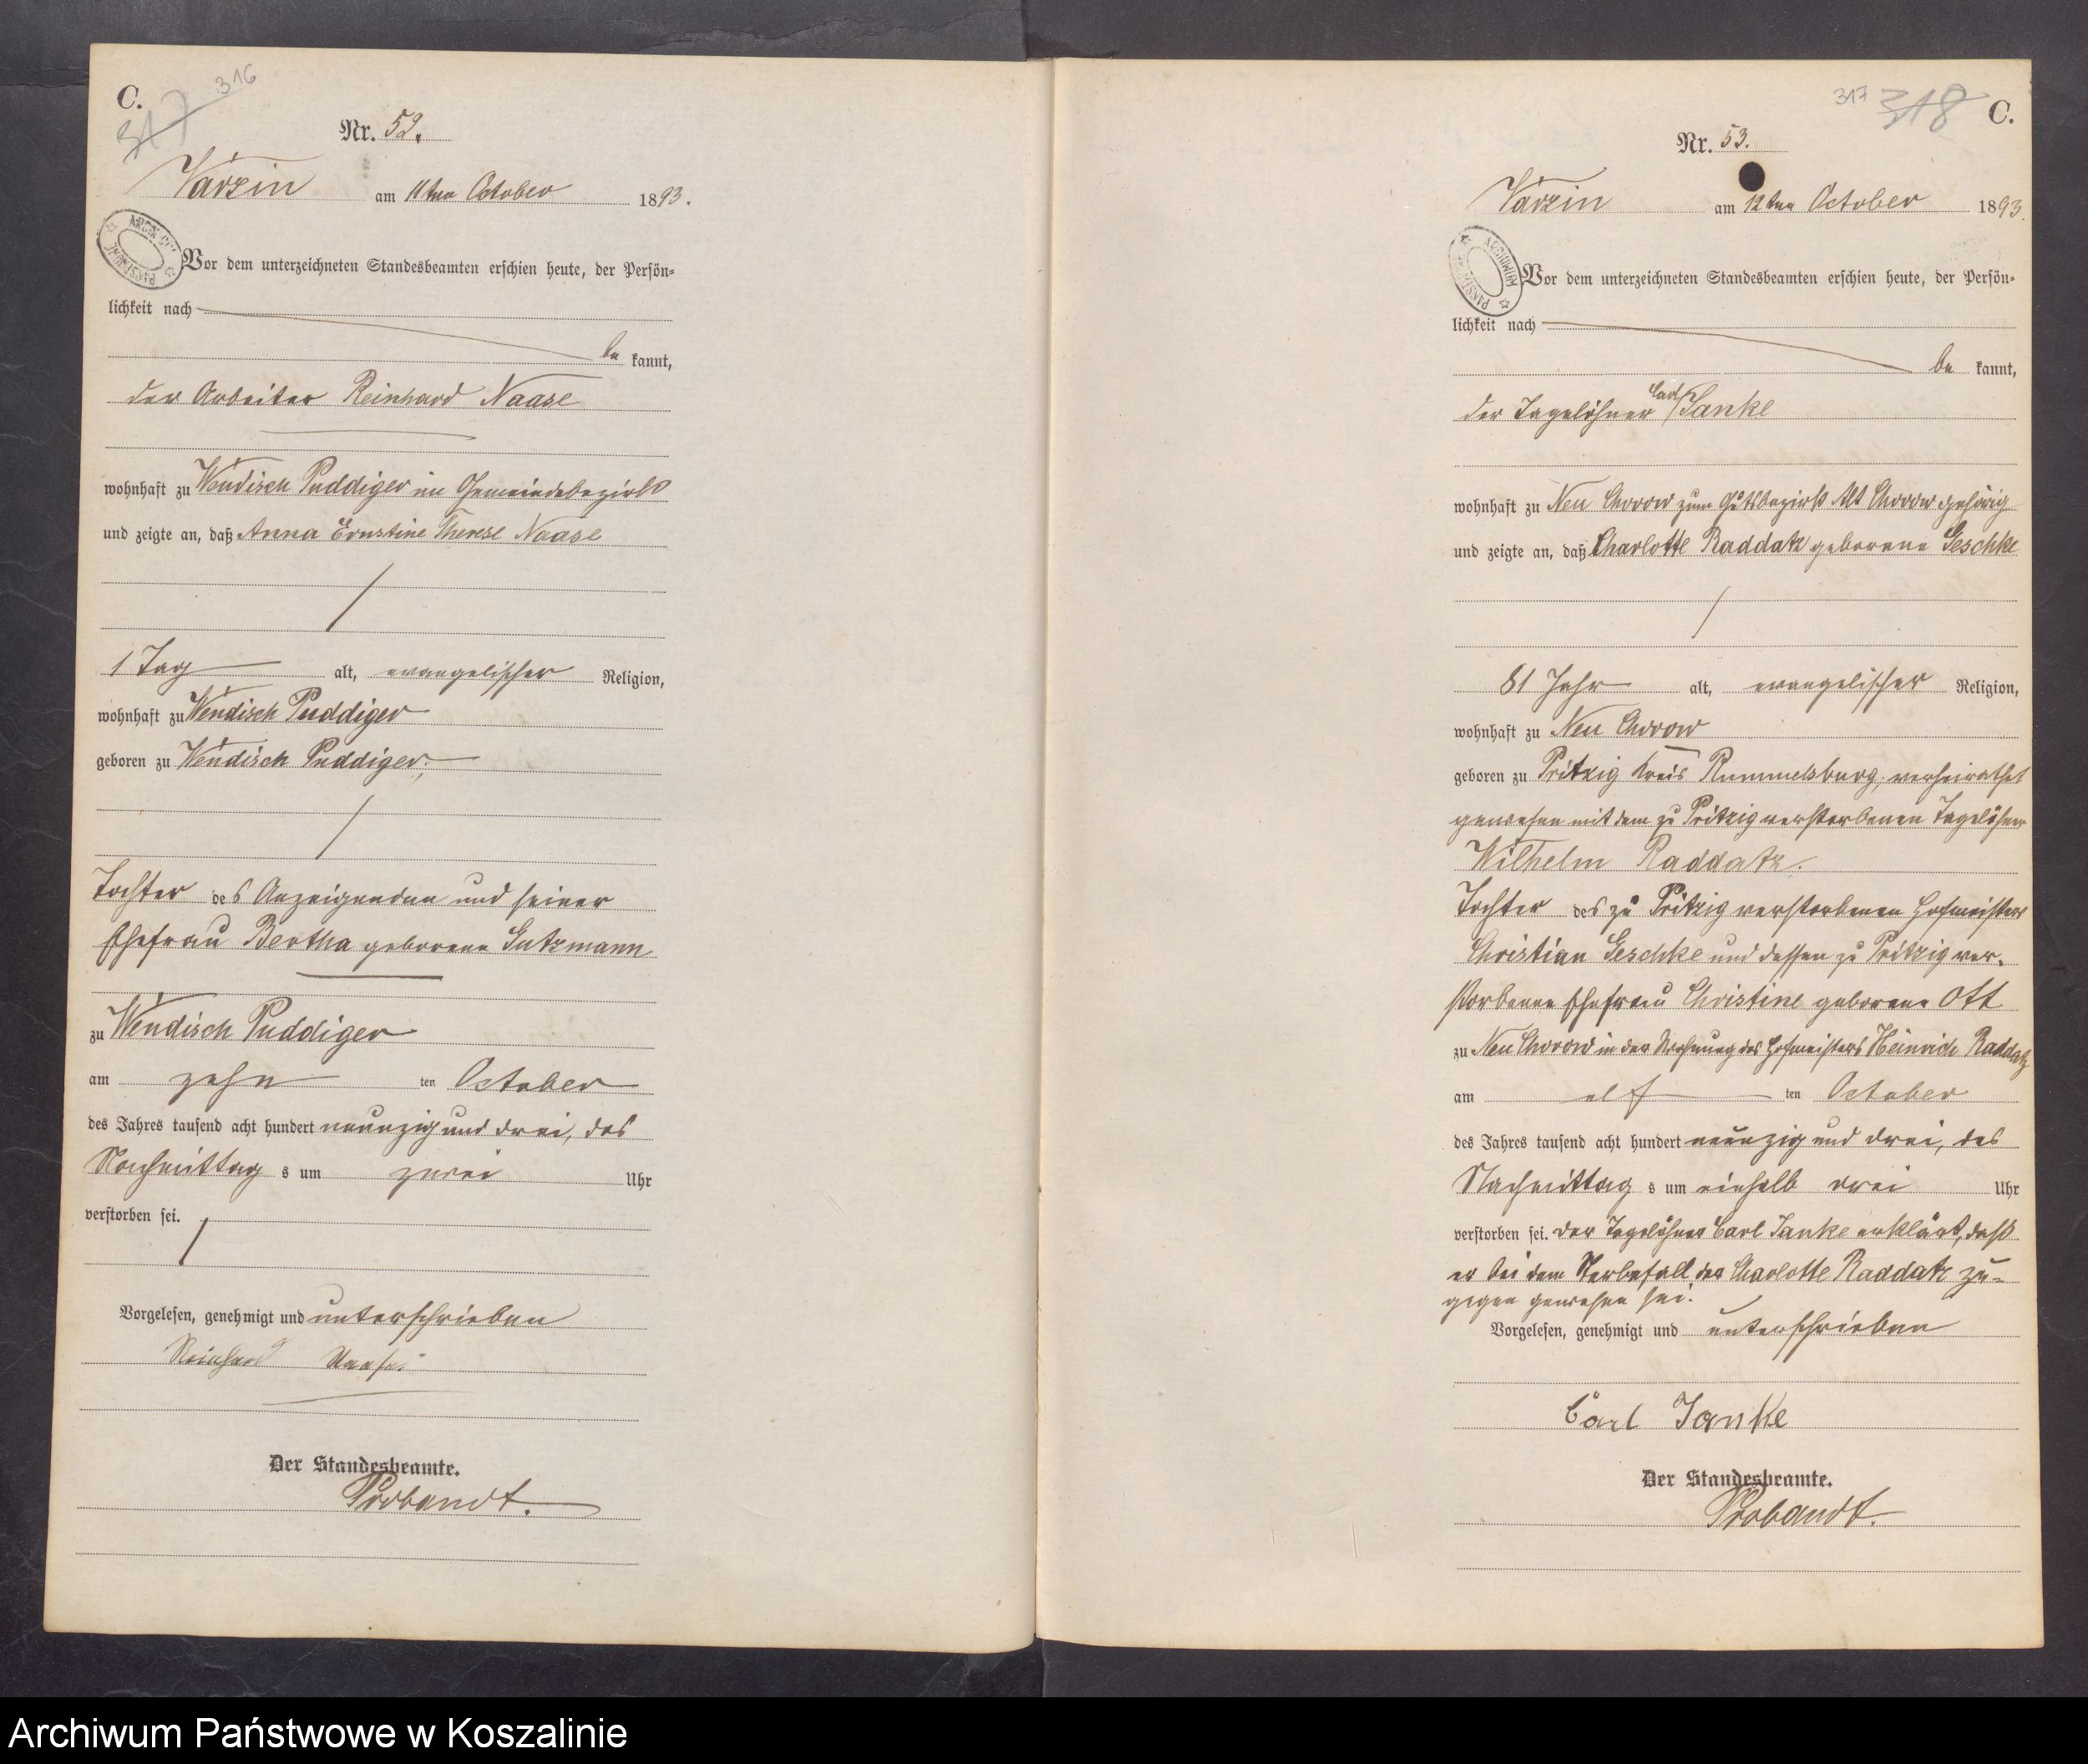 C.
317 316
Nr. 52.
Varzin am 11ten October 1893.
Vor dem unterzeichneten Standesbeamten erschien heute, der Persön=
lichkeit nach
be kannt,
der Arbeiter Reinhard Naase
wohnhaft zu Wendisch Puddiger im Gemeindebezirk
und zeigte an, daß Anna Ernstine Therese Naase
1 Tag alt, evangelischer Religion,
wohnhaft zu Wendisch Puddiger
geboren zu Wendisch Puddiger,
Tochter des Anzeigenden und seiner
Ehefrau Bertha geborene Gutzmann
zu Wendisch Puddiger
am zehn ten October
des Jahres tausend acht hundert neunzig und drei, des
Nachmittag s um zwei Uhr
verstorben sei.
Vorgelesen, genehmigt und unterschrieben
Reinhard Naase
Der Standesbeamte.
Probandt.
317 318 C.
Nr. 53.
Varzin am 12ten October 1893.
ARCHIWUM
Vor dem unterzeichneten Standesbeamten erschien heute, der Persön=
lichkeit nach
be kannt,
der Tagelöhner Carl Janke
wohnhaft zu Neu Chorow zum Gutsbezirk Alt Chorow gehörig
und zeigte an, daß Charlotte Raddatz geborene Geschke
81 Jahr alt, evangelischer Religion,
wohnhaft zu Neu Chorow
geboren zu Pritzig Kreis Rummelsburg, verheirathet
gewesen mit dem zu Pritzig verstorbenen Tagelöhner
Wilhelm Raddatz.
Tochter des zu Pritzig verstorbenen Hofmeisters
Christian Geschke und dessen zu Pritzig ver-
storbenen Ehefrau Christine geborene Ott
zu Neu Chorow in der Wohnung des Hofmeisters Heinrich Raddatz
am elf ten October
des Jahres tausend acht hundert neunzig und drei, des
Nachmittag s um einhalb drei Uhr
verstorben sei. Der Tagelöhner Carl Janke erklärt, daß
er bei dem Sterbefall der Charlotte Raddatz zu-
gegen gewesen sei.
Vorgelesen, genehmigt und unterschrieben
Carl Janke
Der Standesbeamte.
Probandt.
Archiwum Państwowe w Koszalinie